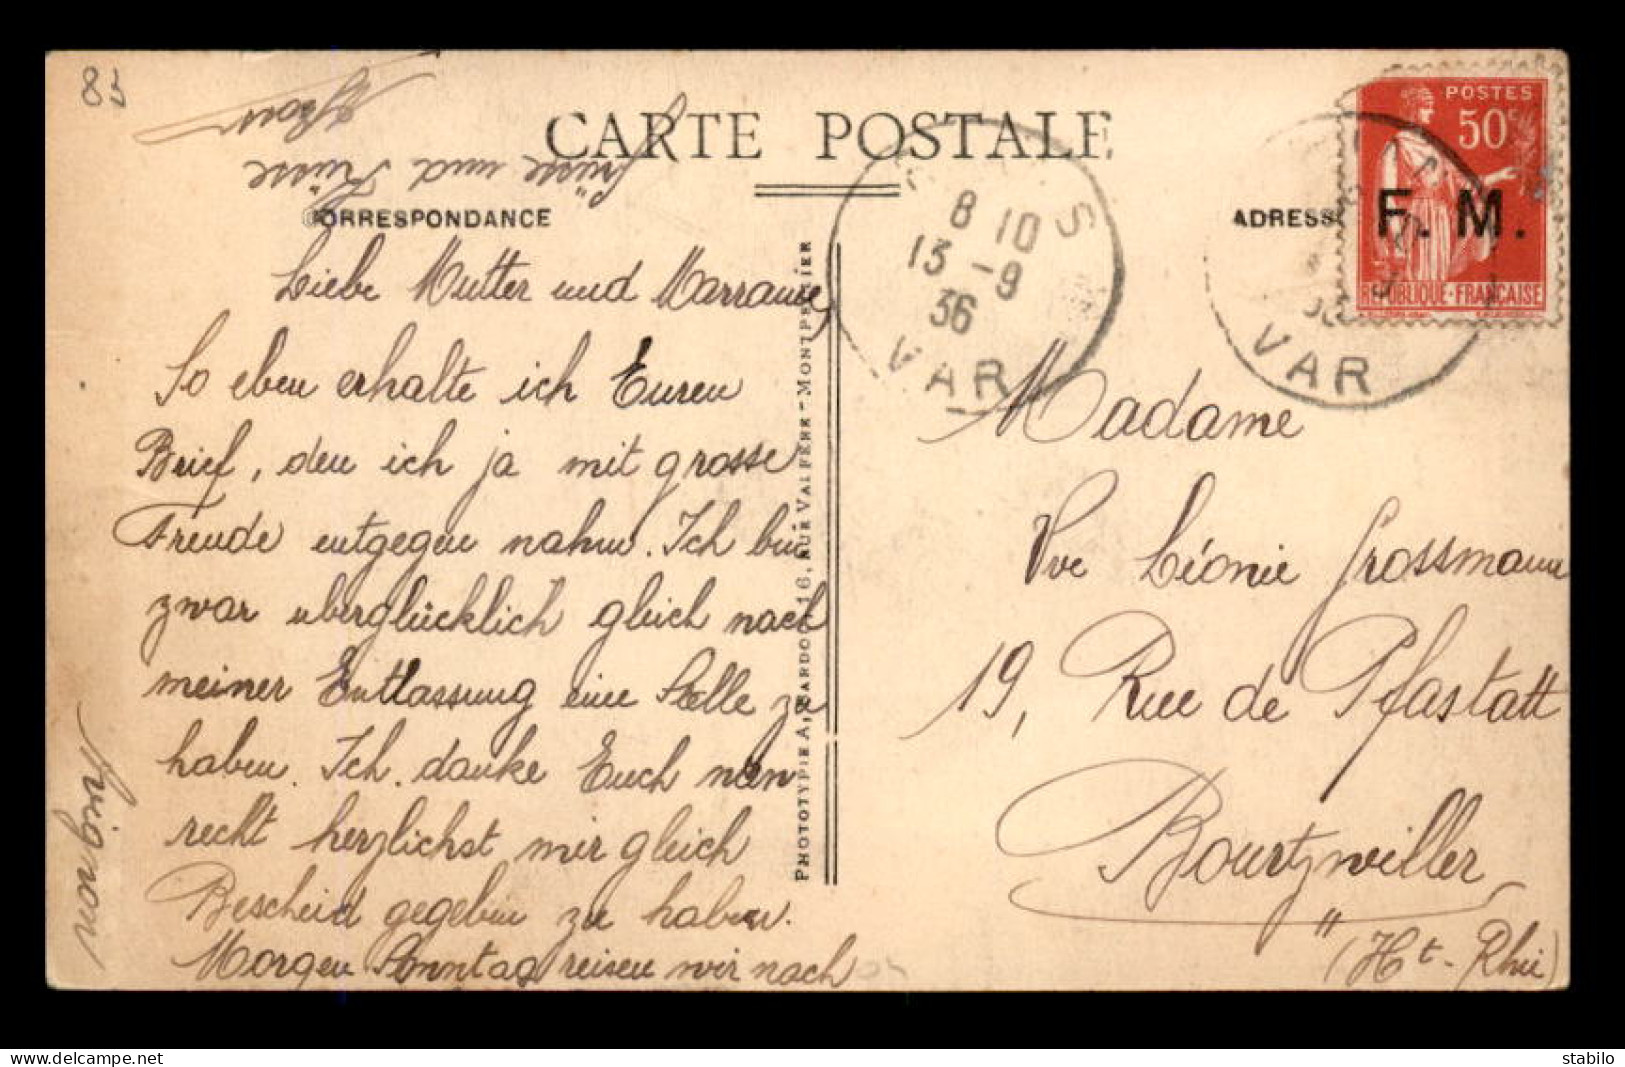 83
CARTE POSTALE
CORRESPONDANCE
ADRESSE
POSTES
50c
F. M.
REPUBLIQUE-FRANÇAISE
8 10
13 -9
36
VAR
VAR
Liebe Mutter und Marraine,
So eben erhalte ich Euren
Brief, den ich ja mit grosse
Freude entgegen nahm. Ich bin
zwar uberglücklich gleich nach
meiner Entlassung eine Stelle zu
haben. Ich danke Euch nun
recht herzlichst mir gleich
Bescheid gegeben zu haben.
Morgen Sonntag reisen wir nach
Avignon
Grüsse und Küsse
PHOTOTYPIE A. BARDOU, 16, RUE VALFÈRE - MONTPELLIER
Madame
Vve Léonie Grossmann
19, Rue de Pfastatt
Bourtzwiller
(Ht-Rhin)
delcampe.net
stabilo